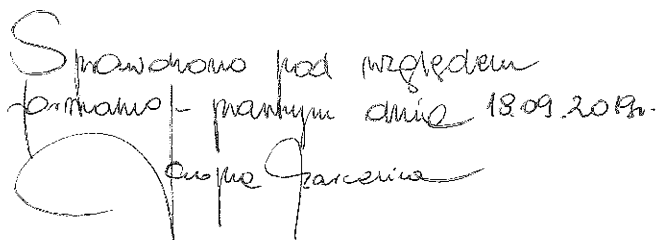 Sprawdzono pod względem
formalno-prawnym dnia 18.09.2019r.